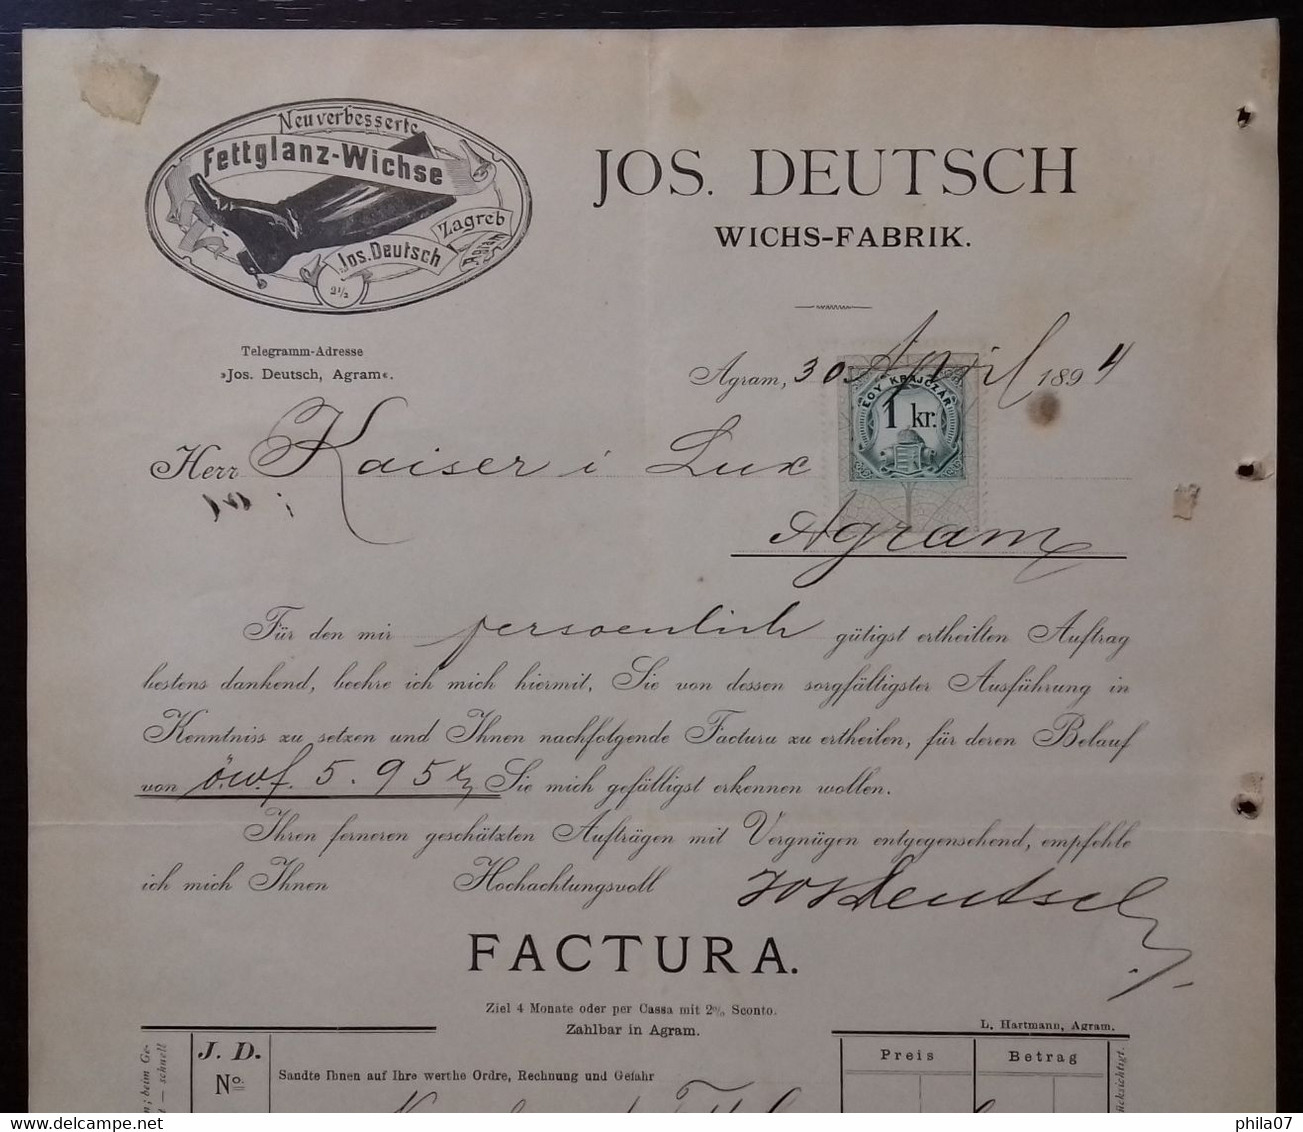 Neuverbesserte
Fettglanz-Wichse
Jos. Deutsch
Zagreb
Agram
2½
JOS. DEUTSCH
WICHS-FABRIK.
Telegramm-Adresse
»Jos. Deutsch, Agram«.
Agram, 30 April 1894
EGY KRAJCZÁR
1 kr.
Herr Kaiser i Lux
Agram
Für den mir persoenlich gütigst ertheilten Auftrag
bestens dankend, beehre ich mich hiermit, Sie von dessen sorgfältigster Ausführung in
Kenntniss zu setzen und Ihnen nachfolgende Factura zu ertheilen, für deren Belauf
von ö.w.f. 5.95 Sie mich gefälligst erkennen wollen.
Ihren ferneren geschätzten Aufträgen mit Vergnügen entgegensehend, empfehle
ich mich Ihnen Hochachtungsvoll Jos Deutsch
FACTURA.
Ziel 4 Monate oder per Cassa mit 2% Sconto.
Zahlbar in Agram.
L. Hartmann, Agram.
J. D.
No.
Sandte Ihnen auf Ihre werthe Ordre, Rechnung und Gefahr
Preis
Betrag
beim Ge-
schnell
phila07
delcampe.net